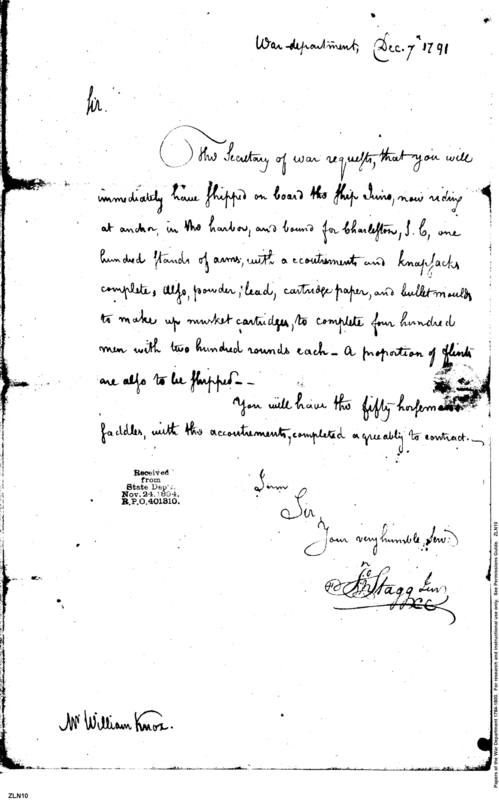 War department, Dec. 7th 1791
Sir.
The Secretary of war requests, that you will
immediately have shipped on board the ship Juno, now riding
at anchor, in the harbor, and bound for Charleston, S. C, one
hundred stands of arms, with accoutrements and knapsacks
complete, also, powder, lead, cartridge paper, and bullet moulds
to make up musket cartridges, to complete four hundred
men with two hundred rounds each - A proportion of flints
are also to be shipped - -
You will have the fifty horsemans
saddles, with the accoutrements, completed agreeably to contract. -
I am
Sir,
Your very humble Serv.
Stagg Jun
Mr William Knox.
Received
from
State Dep't.
Nov. 24. 1894.
R.P.O. 401310.
Papers of the War Department 1784-1800. For research and instructional use only. See Permissions Guide. ZLN10
ZLN10